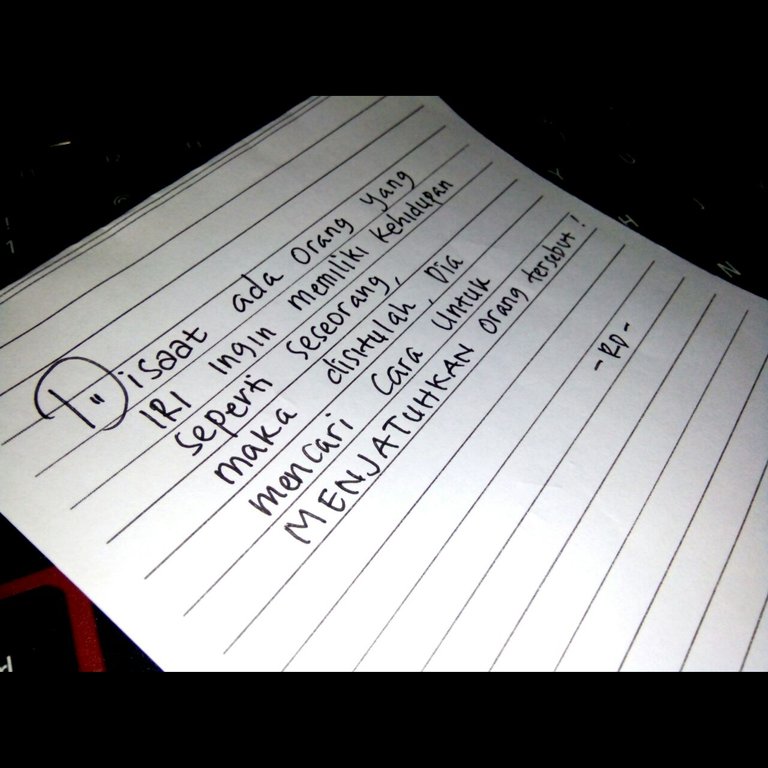 Disaat ada orang yang
IRI ingin memiliki kehidupan
seperti seseorang,
maka disitulah Dia
mencari cara untuk
MENJATUHKAN orang tersebut!
-RD-